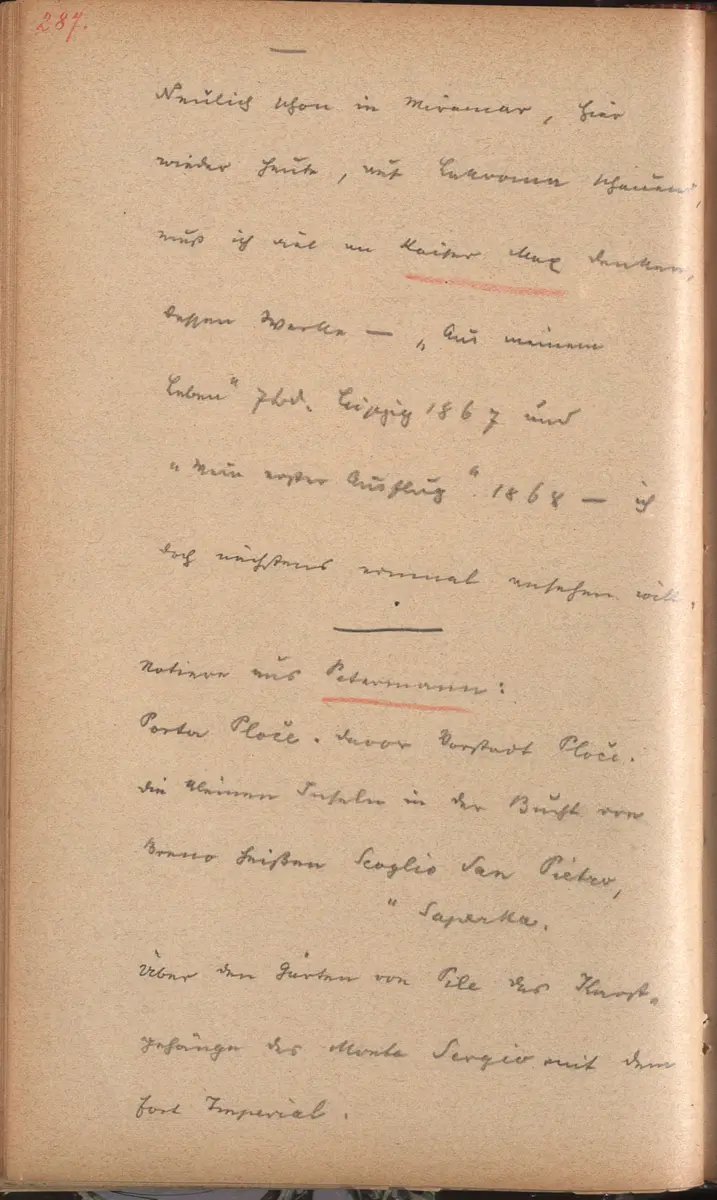 287.
Neulich schon in Miramar, hier
wieder heute, auf Lakroma schauend,
muß ich viel an Kaiser Max denken,
dessen Werke — „Aus meinem
Leben“ 7 bd. Leipzig 1867 und
„Mein erster Ausflug“ 1868 — ich
doch nächstens einmal ansehen will.
Notiere aus Petermann:
Porta Ploče. davor Vorstadt Ploče.
die kleinen Inseln in der Bucht von
Breno heißen Scoglio San Pietro,
" Superka.
Über den Gärten von Pile das Karst-
gehänge des Monte Sergio mit dem
Fort Imperial.